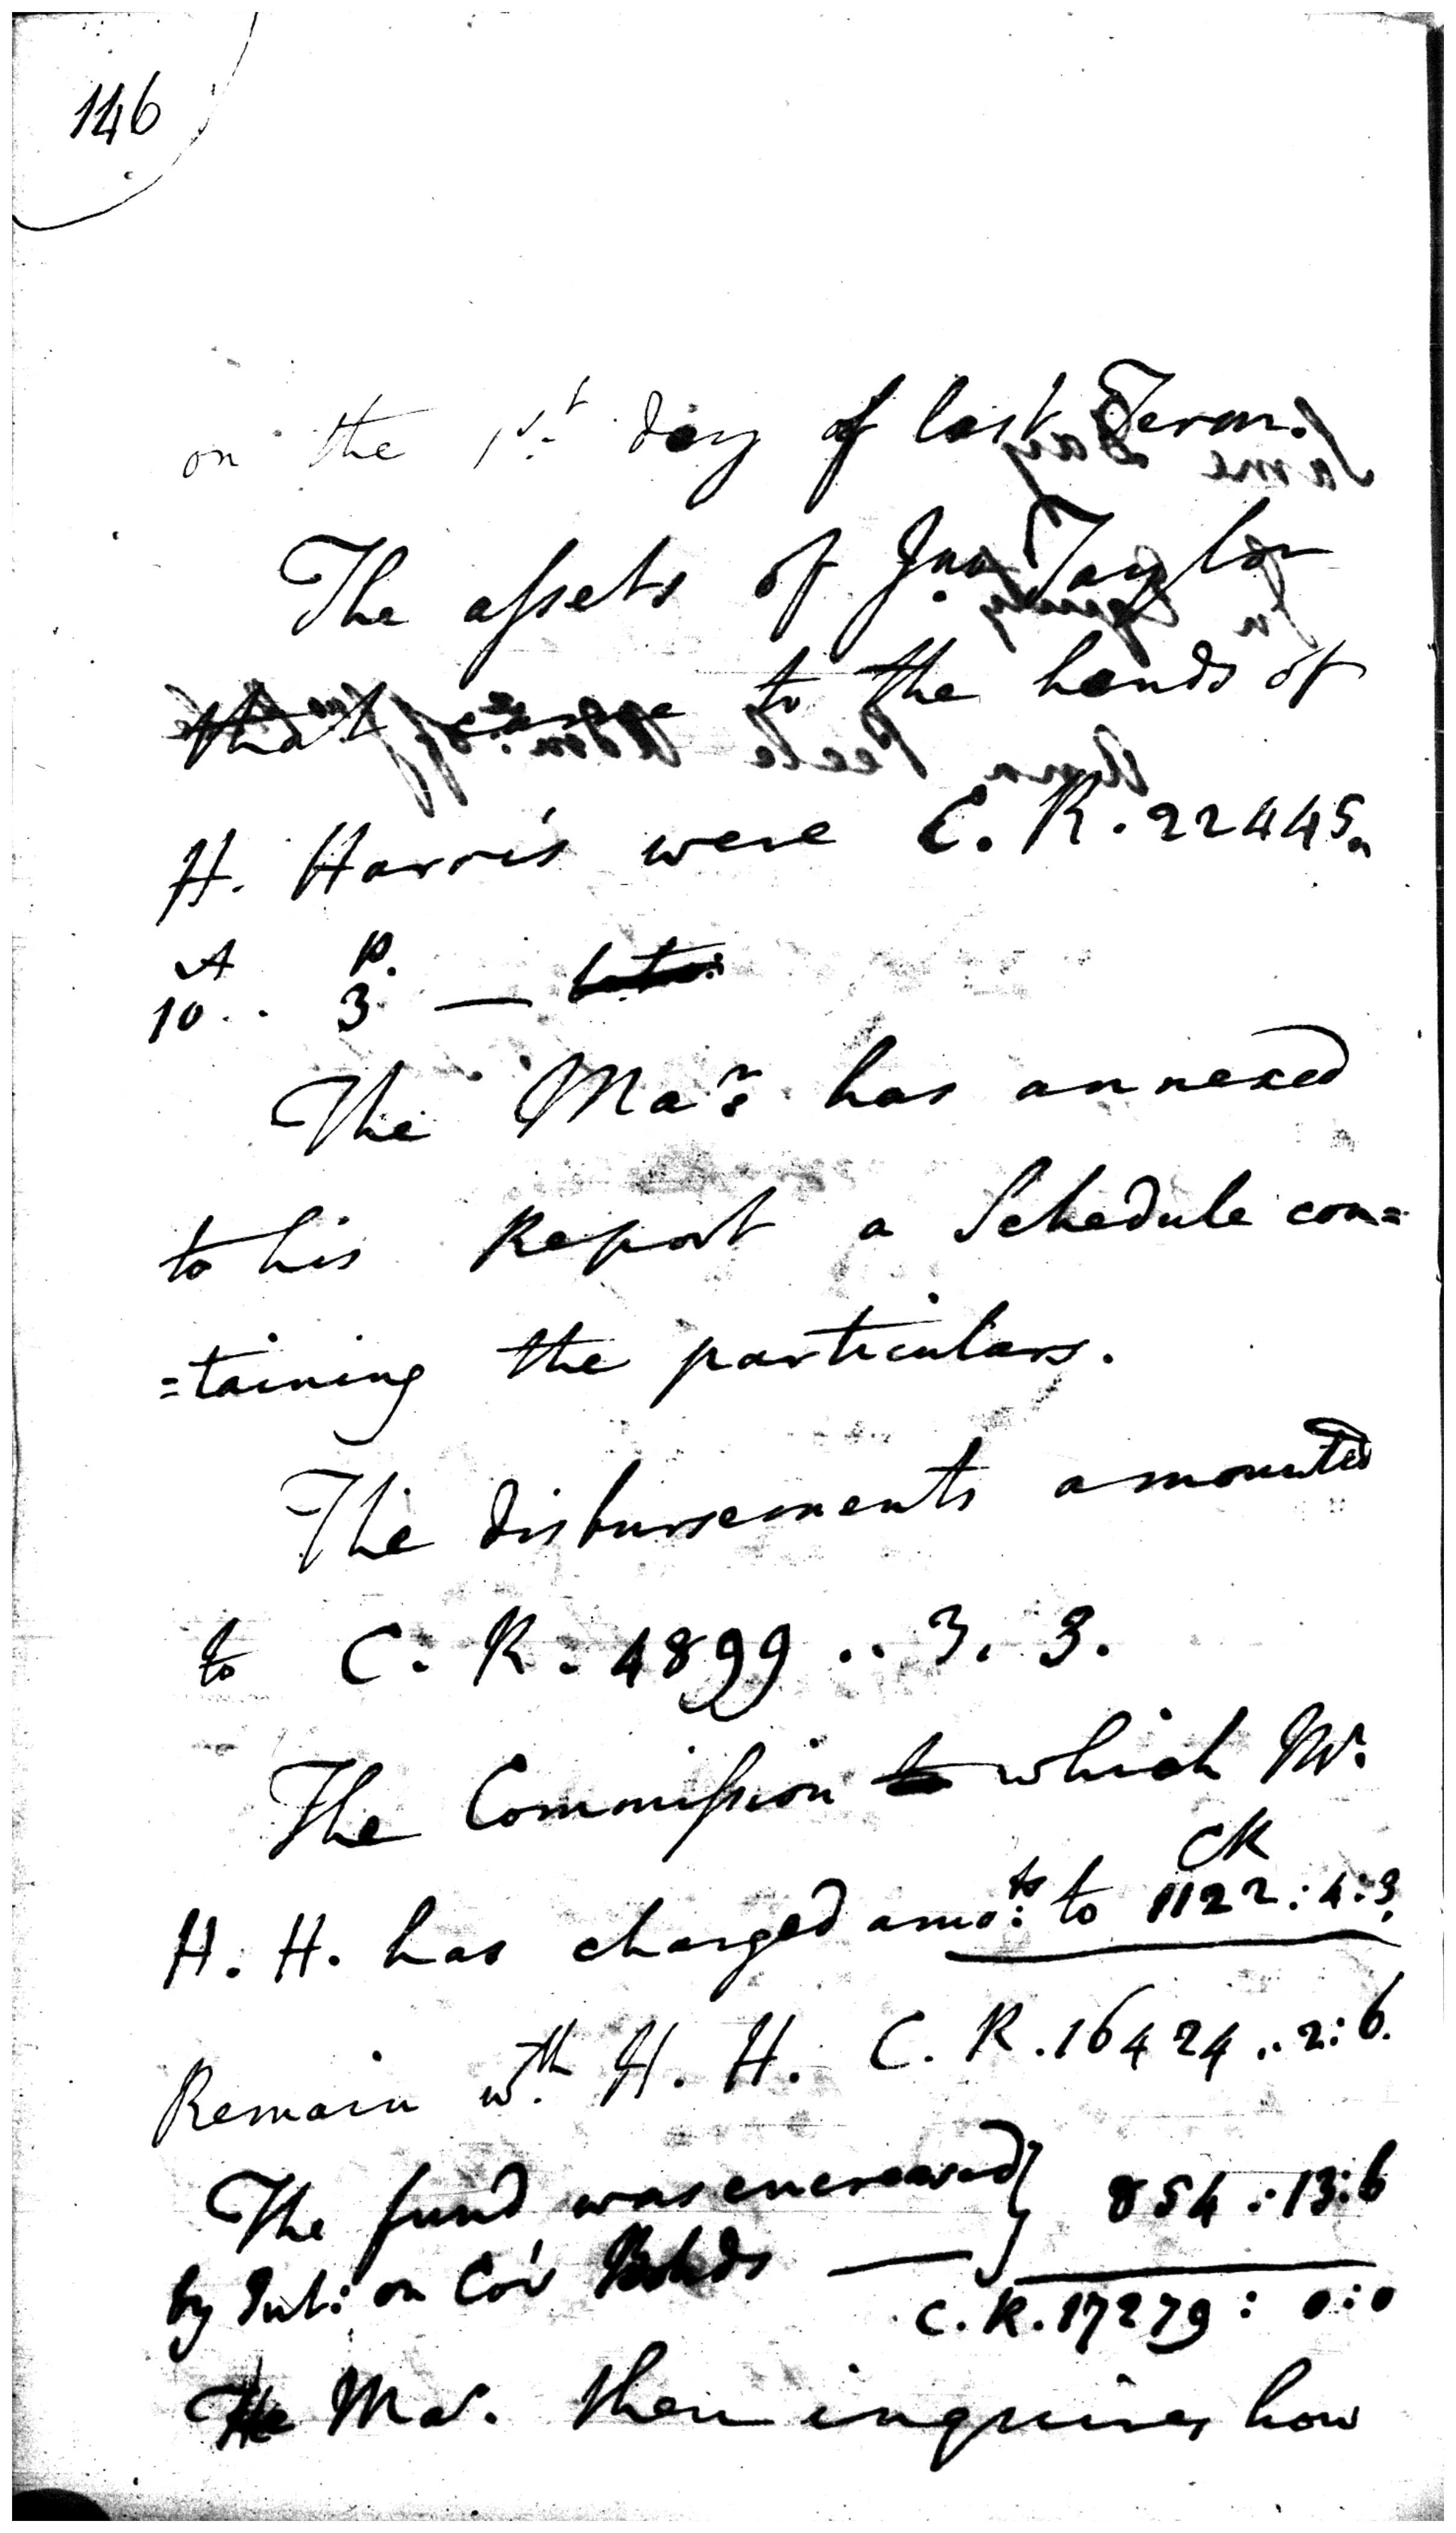 146
on the 1st day of last Term.
The assets of Jno. Taylor
that came to the hands of
H. Harris were C. R. 22445.
A P.
10 .. 3 —
The Mar. has annexed
to his Report a Schedule con=
=taining the particulars.
The disbursements amounted
to C. R. 4899 .. 3. 3.
The Commission which Mr.
CR
H. H. has charged amots: to 1122 : 4 : 3.
Remain wth. H. H. C. R. 16424 .. 2 : 6.
The fund was encreased } 854 : 13 : 6
by Int: on Co's Bonds —
C. R. 17279 : 0 : 0
The Mar. then inquires how